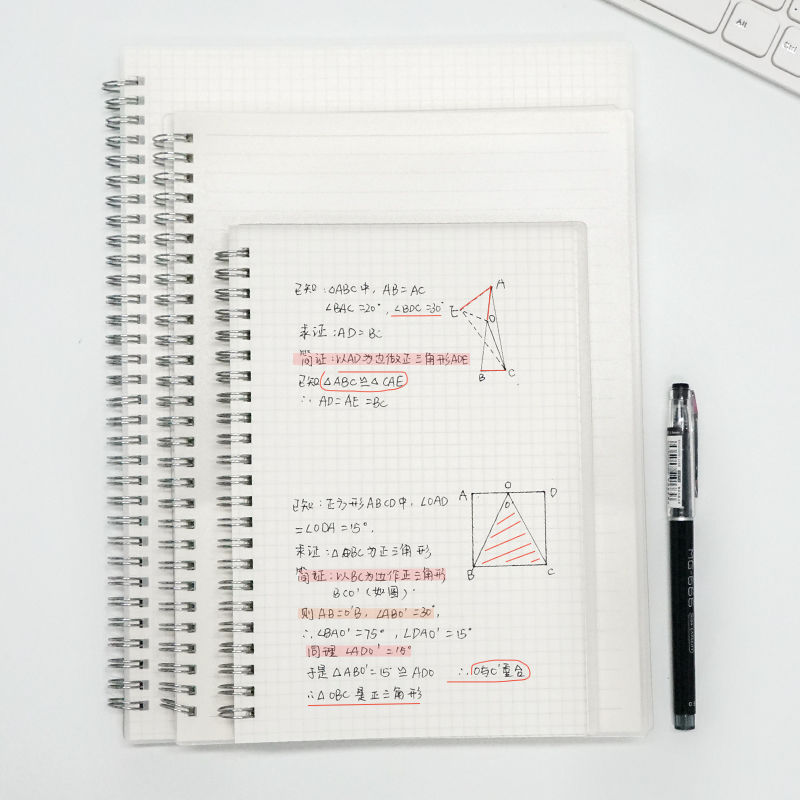 Alt
Ctrl
已知:△ABC中, AB=AC
∠BAC=20°, ∠BDC=30°
求证:AD=BC
简证:以AD为边做正三角形ADE
已知△ABC≌△CAE
∴ AD=AE=BC
A
E
D
B
C
已知:正方形ABCD中, ∠OAD
=∠ODA=15°.
求证:△OBC为正三角形
简证:以BC为边作正三角形
BCO'(如图)
则AB=O'B, ∠ABO'=30°,
∴∠BAO'=75°, ∠DAO'=15°
同理 ∠ADO'=15°
于是△ABO'=15°≌ADO ∴10与C'重合
∴△OBC是正三角形
A
O
D
O'
B
C
MG-666